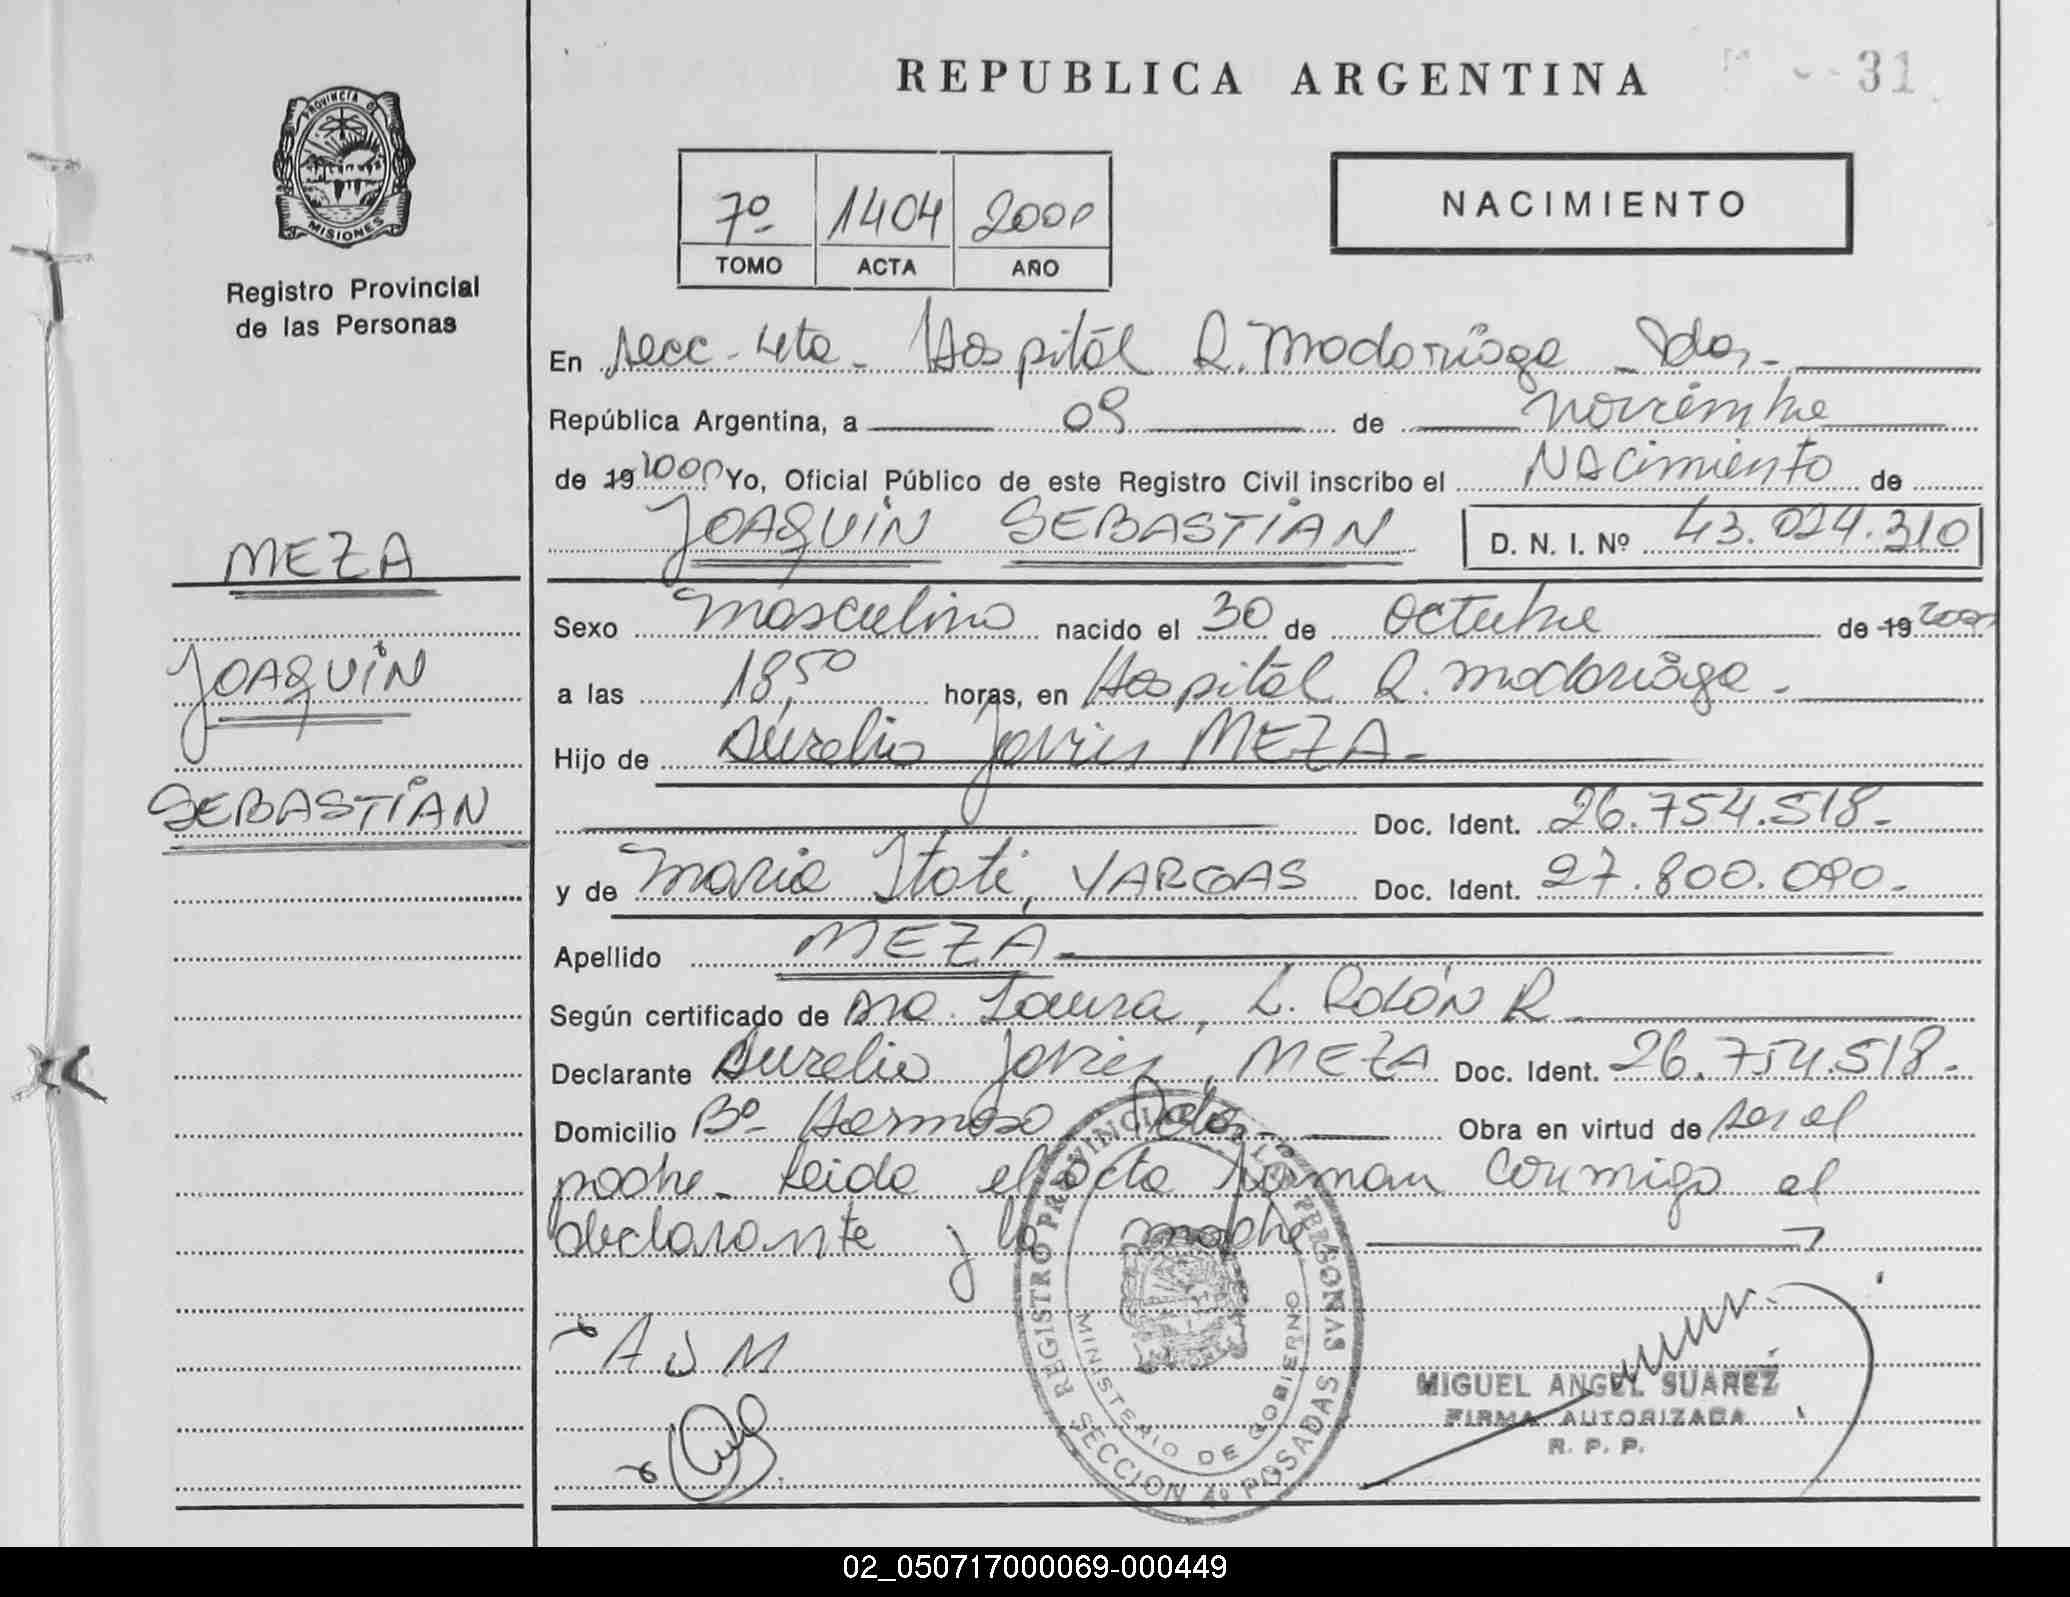 REPUBLICA ARGENTINA
31
PROVINCIA D
MISIONES
Registro Provincial
de las Personas
7º 1404 2000
TOMO ACTA AÑO
NACIMIENTO
En Secc - 4ta - Hospital R. Madariaga - Pdas -
República Argentina, a 09 de Noviembre
de 19 2000 Yo, Oficial Público de este Registro Civil inscribo el Nacimiento de
JOAQUIN SEBASTIAN D. N. I. Nº 43.024.310
MEZA
JOAQUIN
SEBASTIAN
Sexo masculino nacido el 30 de octubre de 19 2000
a las 18,50 horas, en Hospital R. Madariaga -
Hijo de Aurelio Javier MEZA -
Doc. Ident. 26.754.518 -
y de Maria Itati, VARGAS Doc. Ident. 27.800.090 -
Apellido MEZA
Según certificado de Dra. Laura, L. ROLÓN R
Declarante Aurelio Javier, MEZA Doc. Ident. 26.754.518 -
Domicilio Bº Hermoso Pdas - Obra en virtud de ser el
padre - Leida el acta firman conmigo el
declarante y la madre
A J M
REGISTRO PROVINCIAL DE LAS PERSONAS
MINISTERIO DE GOBIERNO
SECCION 4º POSADAS
MIGUEL ANGEL SUAREZ
FIRMA AUTORIZADA
R. P. P.
02_050717000069-000449